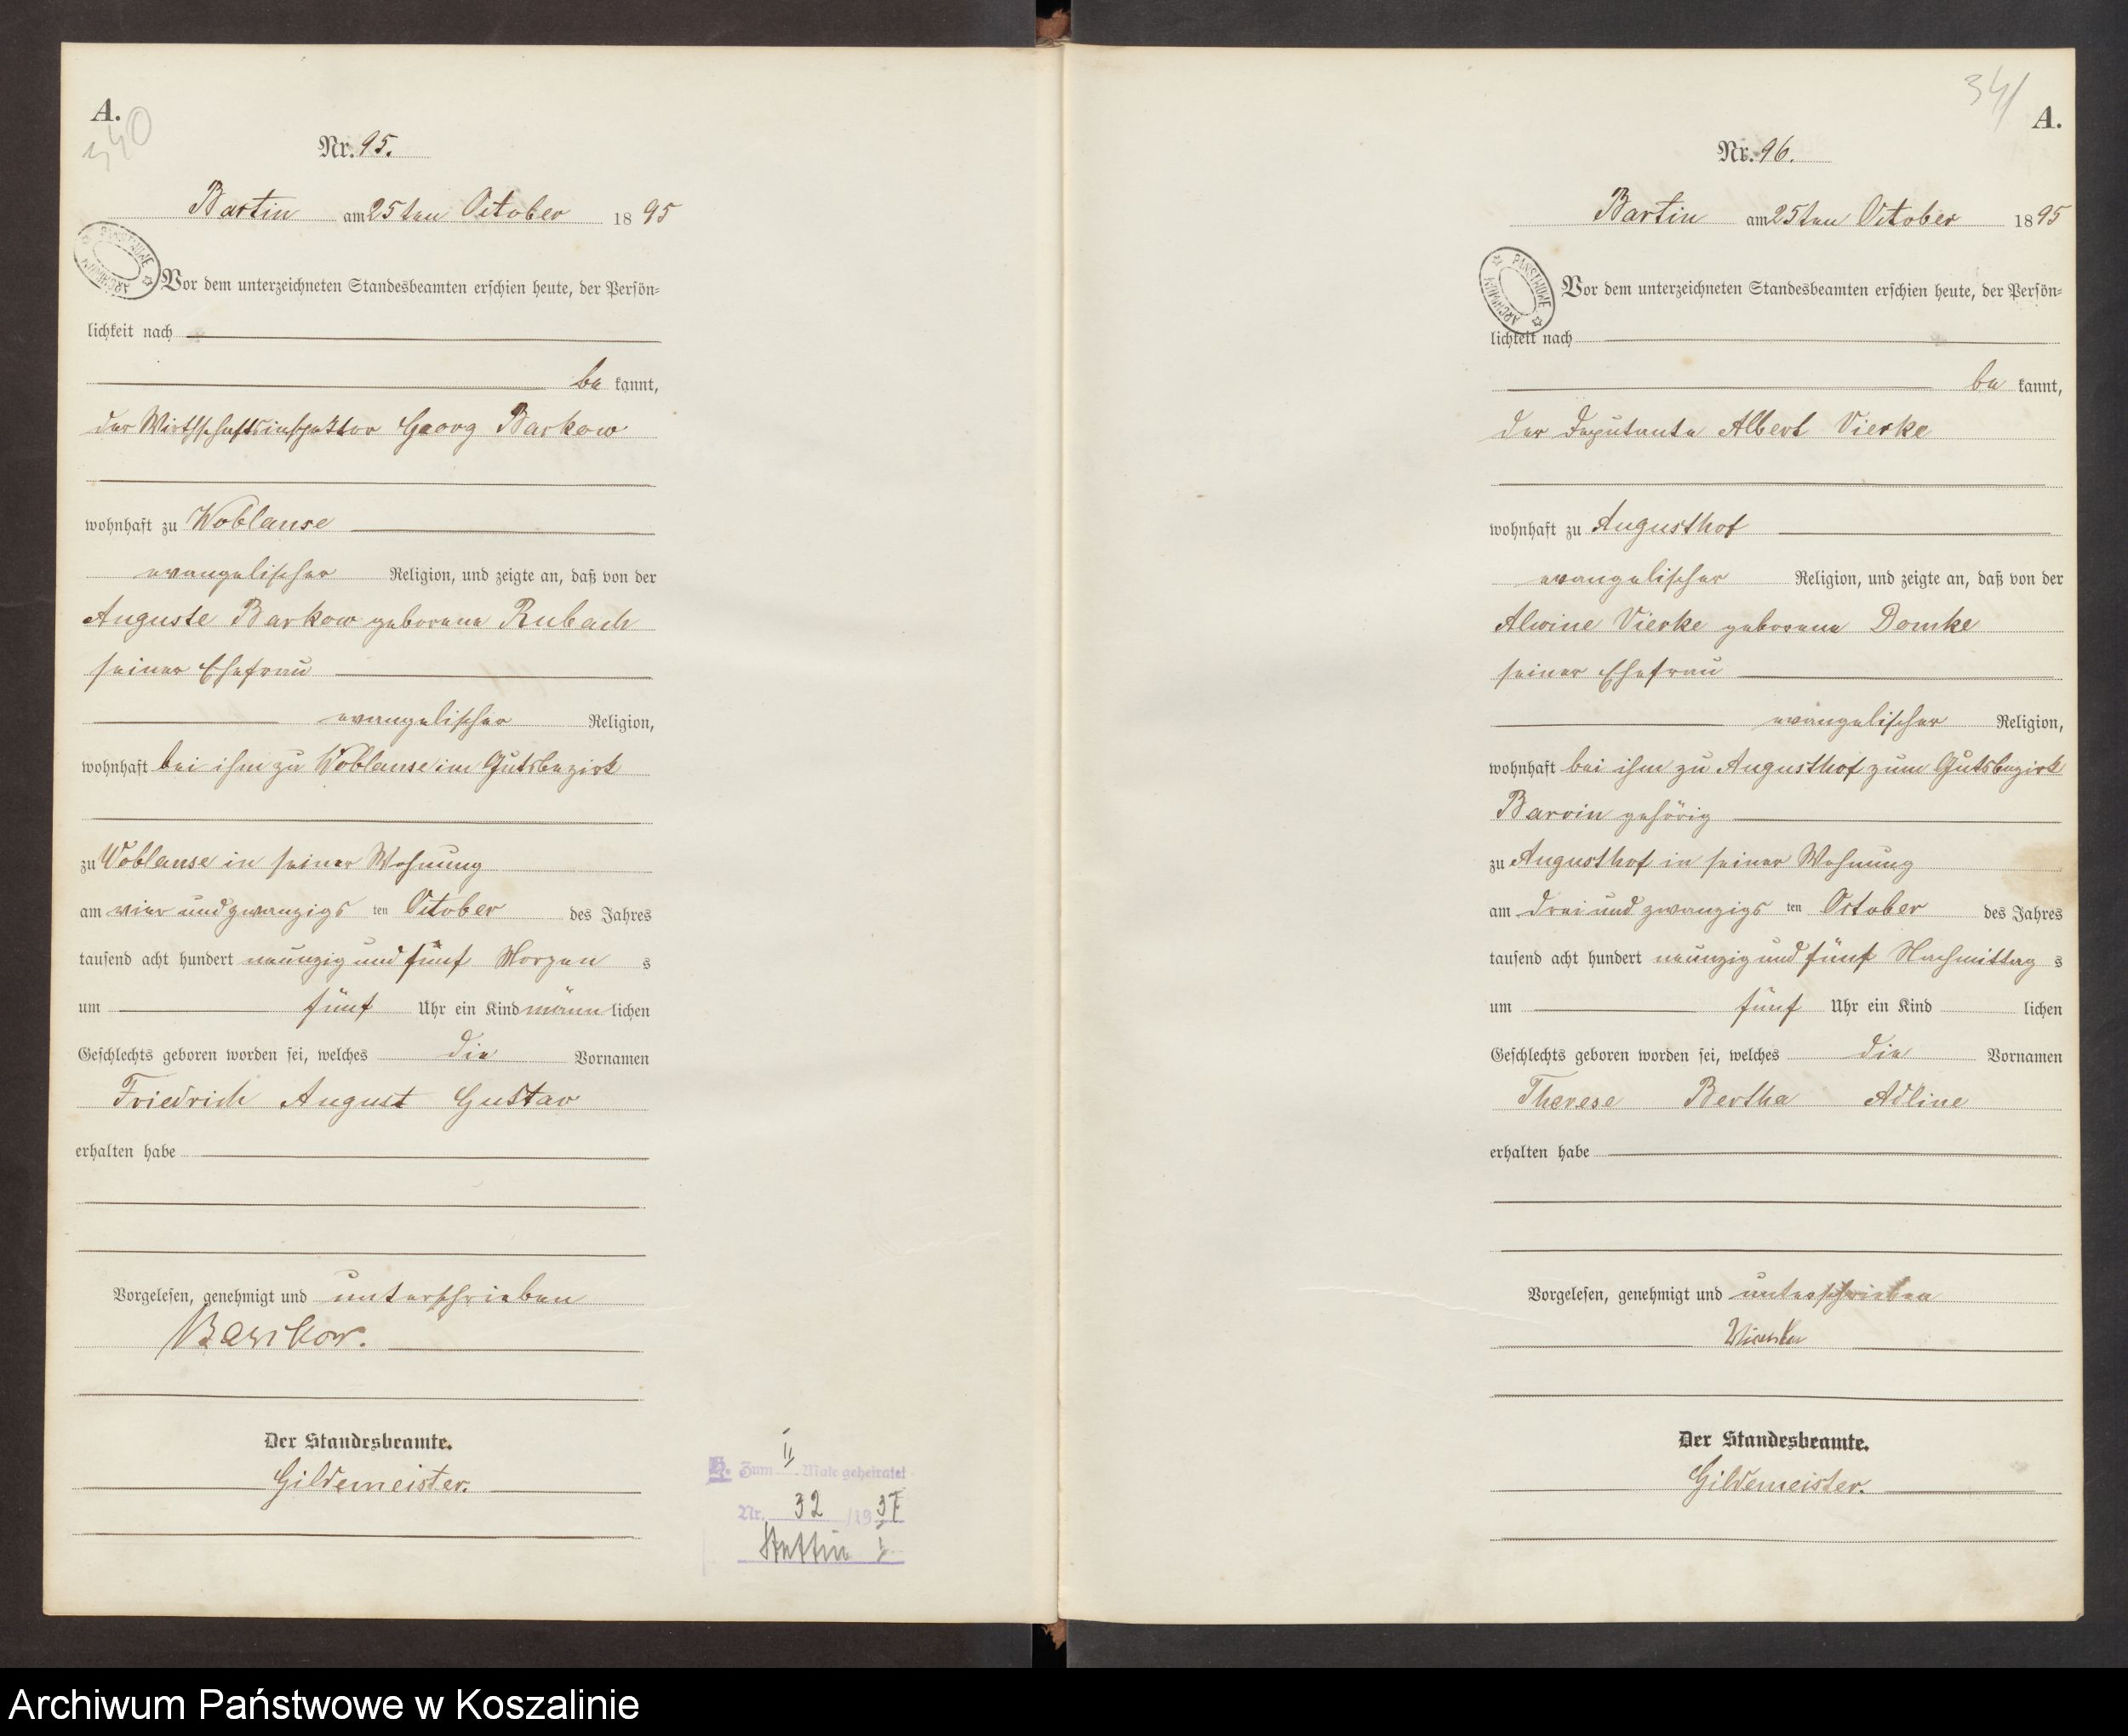 A.
340
Nr. 95.
Bartin am 25ten October 1895
PAŃSTWOWE ARCHIWUM
Vor dem unterzeichneten Standesbeamten erschien heute, der Persön=
lichkeit nach
be kannt,
der Wirthschaftsinspektor Georg Barkow
wohnhaft zu Woblanse
evangelischer Religion, und zeigte an, daß von der
Auguste Barkow geborene Rubach
seiner Ehefrau
evangelischer Religion,
wohnhaft bei ihm zu Woblanse im Gutsbezirk
zu Woblanse in seiner Wohnung
am vier und zwanzigs ten October des Jahres
tausend acht hundert neunzig und fünf Morgen s
um fünf Uhr ein Kind männ lichen
Geschlechts geboren worden sei, welches die Vornamen
Friedrich August Gustav
erhalten habe
Vorgelesen, genehmigt und unterschrieben
Barkow.
Der Standesbeamte.
Gildemeister.
H. Zum II Male geheiratet
Nr. 32 /1937
Stettin I
341
A.
Nr. 96.
Bartin am 25ten October 1895
PAŃSTWOWE ARCHIWUM
Vor dem unterzeichneten Standesbeamten erschien heute, der Persön=
lichkeit nach
be kannt,
der Deputante Albert Vierke
wohnhaft zu Augusthof
evangelischer Religion, und zeigte an, daß von der
Alwine Vierke geborene Domke
seiner Ehefrau
evangelischer Religion,
wohnhaft bei ihm zu Augusthof zum Gutsbezirk
Barvin gehörig
zu Augusthof in seiner Wohnung
am drei und zwanzigs ten October des Jahres
tausend acht hundert neunzig und fünf Nachmittag s
um fünf Uhr ein Kind lichen
Geschlechts geboren worden sei, welches die Vornamen
Therese Bertha Adline
erhalten habe
Vorgelesen, genehmigt und unterschrieben
Vierke
Der Standesbeamte.
Gildemeister.
Archiwum Państwowe w Koszalinie